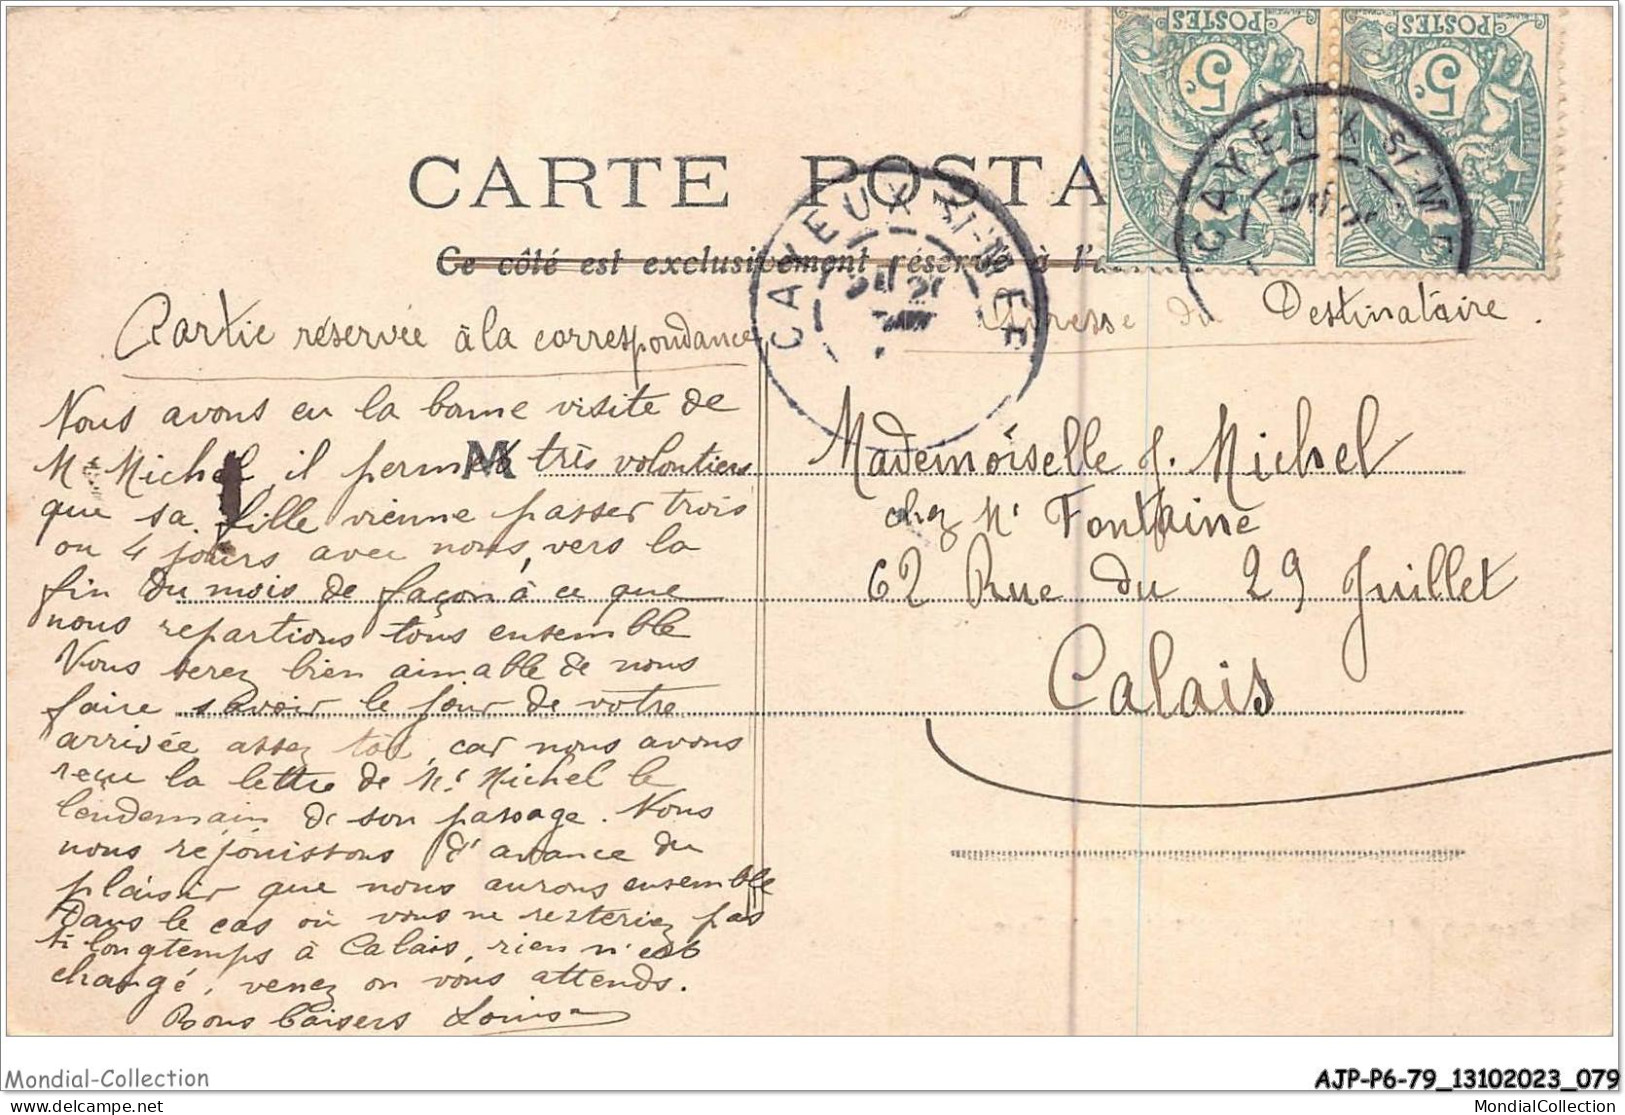 POSTES
5c
POSTES
5c
CAYEUX-S/-MER
CARTE POSTA
Ce côté est exclusivement réservé à l'a
CAYEUX-S/-MER
Partie réservée à la correspondance
Adresse du Destinataire.
Nous avons eu la bonne visite de
Mr Michel, il permet très volontiers
M
que sa fille vienne passer trois
ou 4 jours avec nous, vers la
fin du mois de façon à ce que
nous repartions tous ensemble
Vous serez bien aimable de nous
faire savoir le jour de votre
arrivée assez tôt, car nous avons
reçu la lettre de Mr Michel le
lendemain de son passage. Nous
nous réjouissons d'avance du
plaisir que nous aurons ensemble
Dans le cas où vous ne resteriez pas
si longtemps à Calais, rien n'est
changé, venez on vous attends.
Bons baisers Louisa
Mademoiselle J. Michel
chez Mr Fontaine
62 Rue du 29 Juillet
Calais
Mondial-Collection
AJP-P6-79_13102023_079
MondialCollection